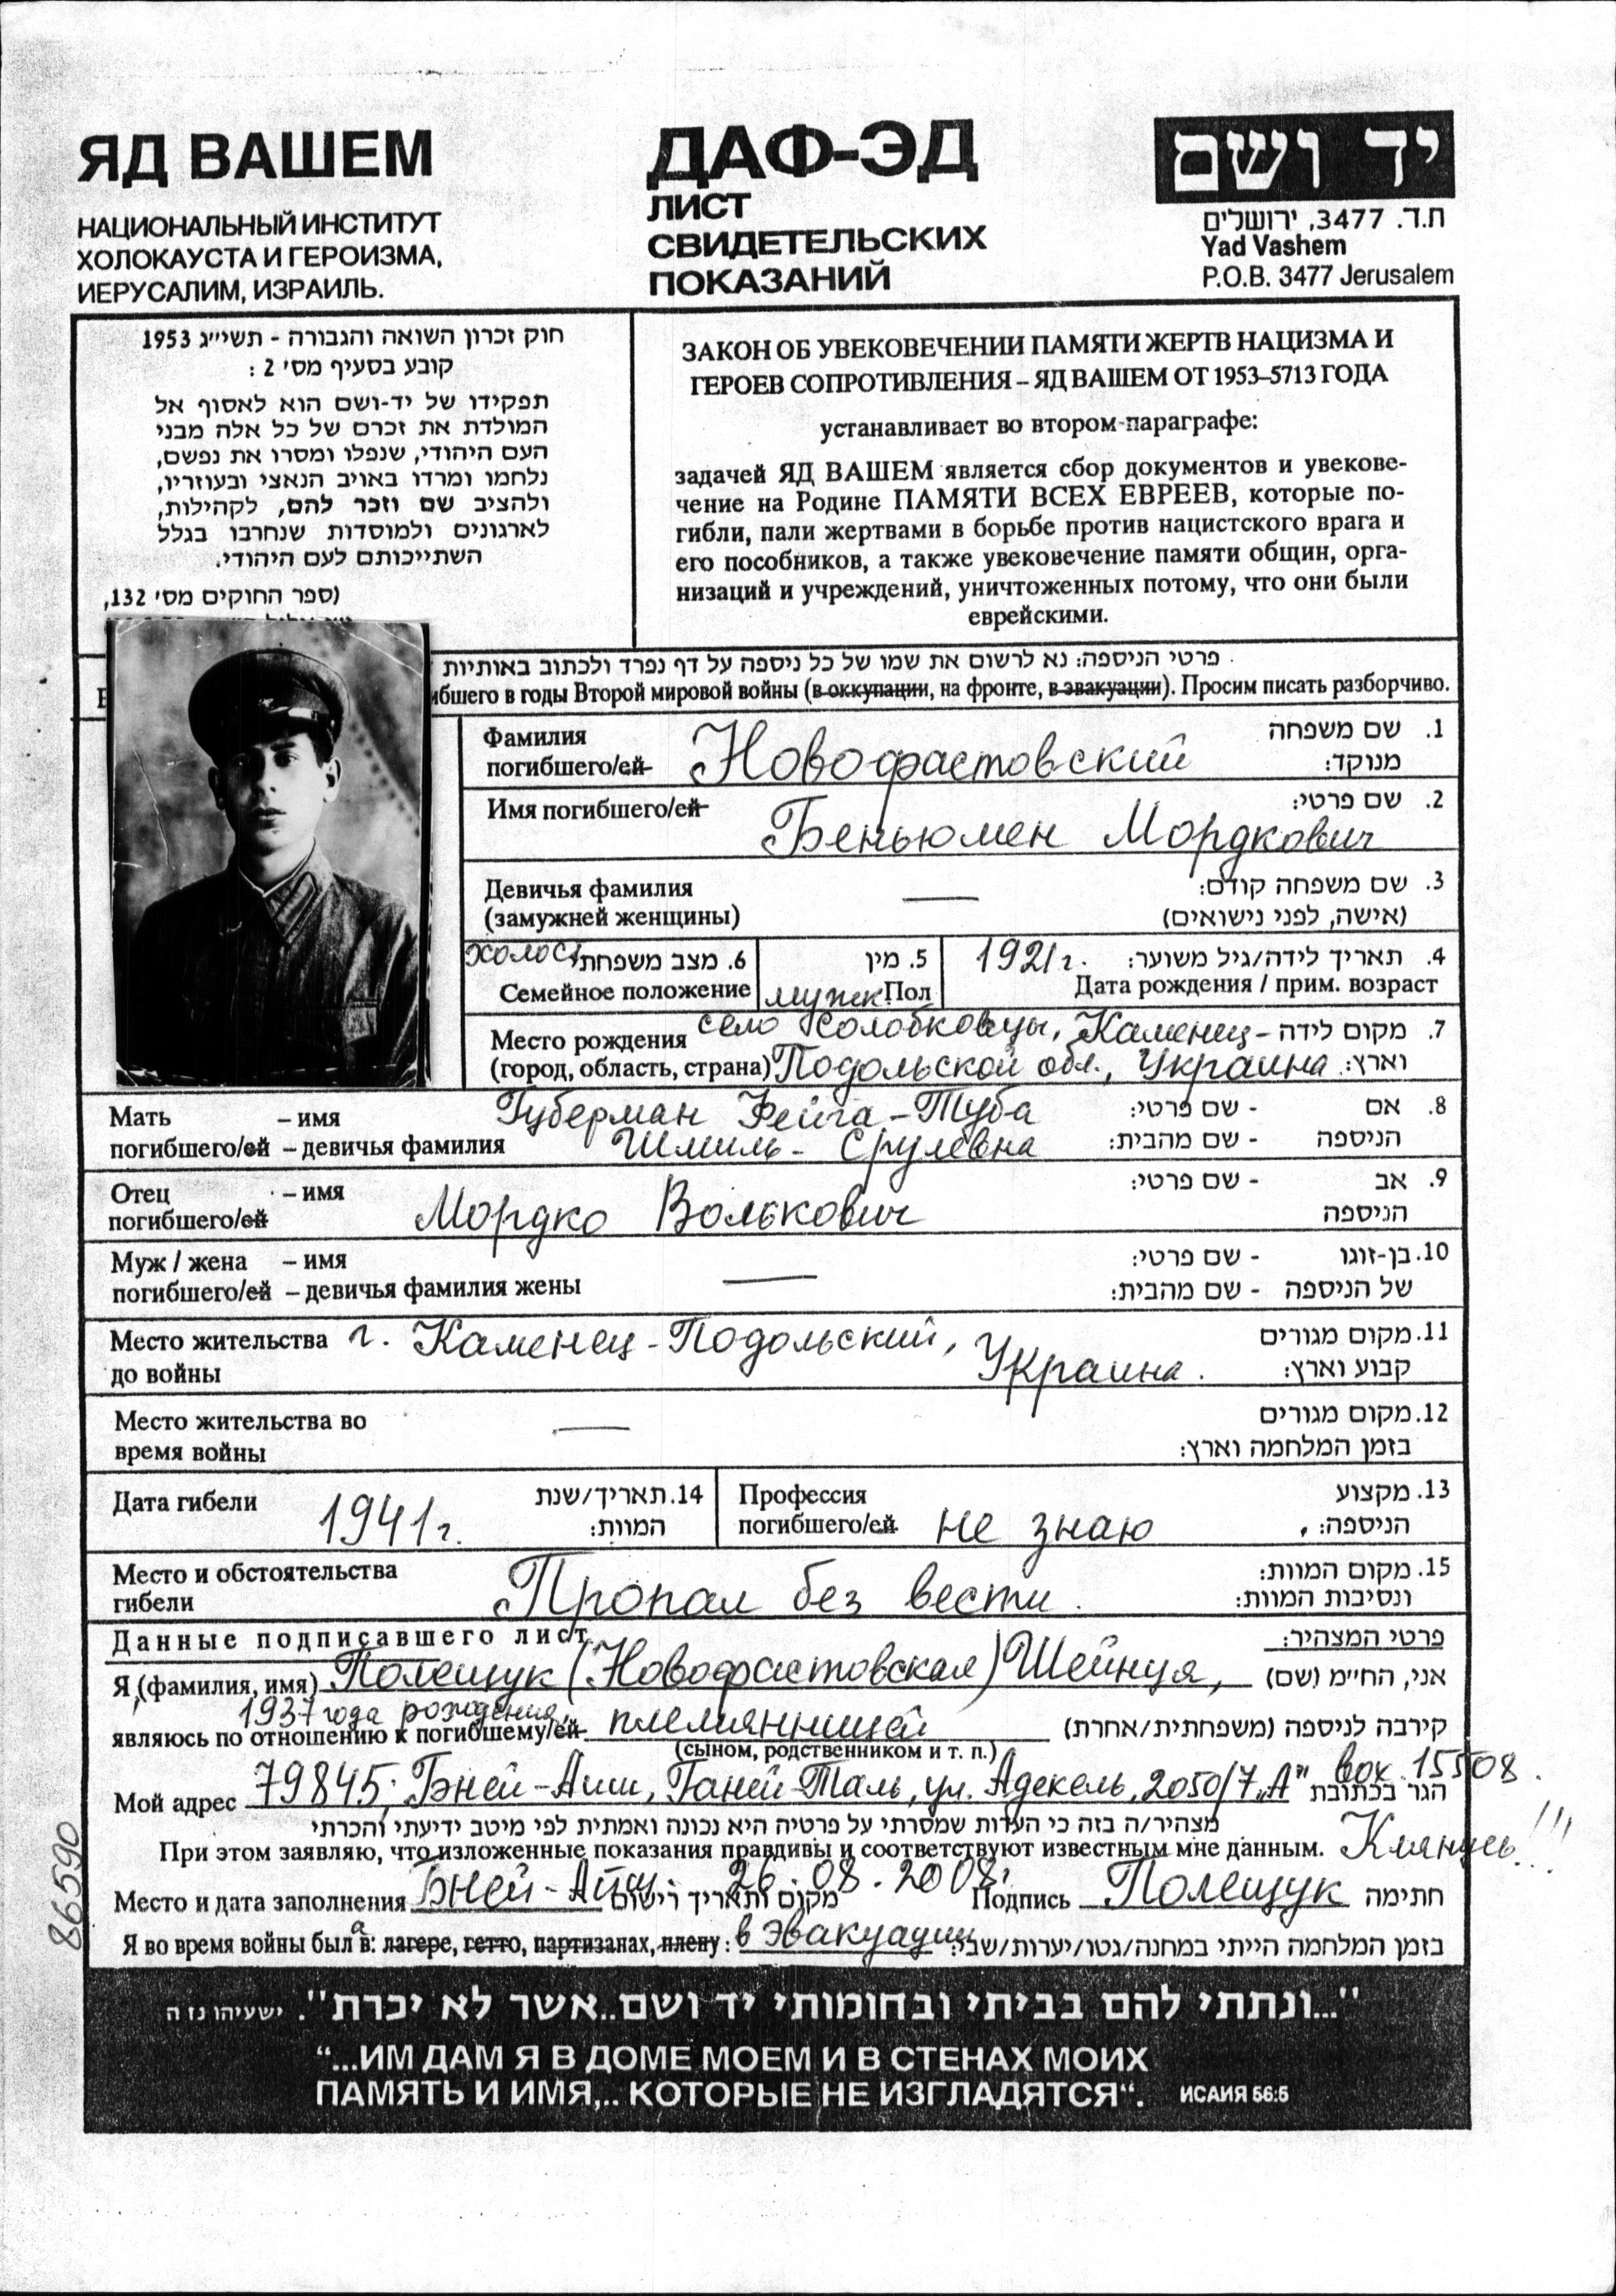 ЯД ВАШЕМ
НАЦИОНАЛЬНЫЙ ИНСТИТУТ
ХОЛОКАУСТА И ГЕРОИЗМА,
ИЕРУСАЛИМ, ИЗРАИЛЬ.
ДАФ-ЭД
ЛИСТ
СВИДЕТЕЛЬСКИХ
ПОКАЗАНИЙ
יד ושם
ת.ד. 3477, ירושלים
Yad Vashem
P.O.B. 3477 Jerusalem
חוק זכרון השואה והגבורה - תשי״ג 1953
קובע בסעיף מס׳ 2 :
תפקידו של יד-ושם הוא לאסוף אל
המולדת את זכרם של כל אלה מבני
העם היהודי, שנפלו ומסרו את נפשם,
נלחמו ומרדו באויב הנאצי ובעוזריו,
ולהציב שם וזכר להם, לקהילות,
לארגונים ולמוסדות שנחרבו בגלל
השתייכותם לעם היהודי.
(ספר החוקים מס׳ 132,
ЗАКОН ОБ УВЕКОВЕЧЕНИИ ПАМЯТИ ЖЕРТВ НАЦИЗМА И
ГЕРОЕВ СОПРОТИВЛЕНИЯ – ЯД ВАШЕМ ОТ 1953–5713 ГОДА
устанавливает во втором параграфе:
задачей ЯД ВАШЕМ является сбор документов и увекове-
чение на Родине ПАМЯТИ ВСЕХ ЕВРЕЕВ, которые по-
гибли, пали жертвами в борьбе против нацистского врага и
его пособников, а также увековечение памяти общин, орга-
низаций и учреждений, уничтоженных потому, что они были
еврейскими.
פרטי הניספה: נא לרשום את שמו של כל ניספה על דף נפרד ולכתוב באותיות
ибшего в годы Второй мировой войны (в оккупации, на фронте, в эвакуации). Просим писать разборчиво.
Фамилия Новофастовский 1. שם משפחה
погибшего/ей מנוקד:
Имя погибшего/ей 2. שם פרטי:
Беньюмен Мордкович
Девичья фамилия — 3. שם משפחה קודם:
(замужней женщины) (אישה, לפני נישואים)
холост 6. מצב משפחתי 5. מין 1921 г. 4. תאריך לידה/גיל משוער:
Семейное положение мужск Пол Дата рождения / прим. возраст
Место рождения село Солобковцы, Каменец- 7. מקום לידה
(город, область, страна) Подольской обл., Украина וארץ:
Мать – имя Губерман Фейга-Туба 8. אם - שם פרטי:
погибшего/ей – девичья фамилия Шмиль-Срулевна הניספה - שם מהבית:
Отец – имя 9. אב - שם פרטי:
погибшего/ей Мордко Волькович הניספה
Муж / жена – имя — 10. בן-זוגו - שם פרטי:
погибшего/ей – девичья фамилия жены של הניספה - שם מהבית:
Место жительства г. Каменец-Подольский, 11. מקום מגורים
до войны Украина. קבוע וארץ:
Место жительства во — 12. מקום מגורים
время войны בזמן המלחמה וארץ:
Дата гибели 1941 г. 14. תאריך/שנת המוות:
Профессия 13. מקצוע
погибшего/ей не знаю הניספה:
Место и обстоятельства 15. מקום המוות:
гибели Пропал без вести. ונסיבות המוות:
Данные подписавшего лист פרטי המצהיר:
Я (фамилия, имя) Полещук (Новофастовская) Шейнця, אני, הח״מ (שם)
1937 года рождения,
являюсь по отношению к погибшему/ей племянницей קירבה לניספה (משפחתית/אחרת)
(сыном, родственником и т. п.)
Мой адрес 79845, Бней-Аиш, Ганей-Таль, ул. Адекель, 2050/7 „А" box 15508. הגר בכתובת
מצהיר/ה בזה כי העדות שמסרתי על פרטיה היא נכונה ואמתית לפי מיטב ידיעתי והכרתי
При этом заявляю, что изложенные показания правдивы и соответствуют известным мне данным. Клянусь!!!
Место и дата заполнения Бней-Аиш. 26.08.2008. מקום ותאריך רישום Подпись Полещук חתימה
Я во время войны был а в: лагере, гетто, партизанах, плену: в эвакуации בזמן המלחמה הייתי במחנה/גטו/יערות/שבי:
865590
"...ונתתי להם בביתי ובחומותי יד ושם..אשר לא יכרת". ישעיהו נז ה
“...ИМ ДАМ Я В ДОМЕ МОЕМ И В СТЕНАХ МОИХ
ПАМЯТЬ И ИМЯ,.. КОТОРЫЕ НЕ ИЗГЛАДЯТСЯ“. ИСАИЯ 56:5